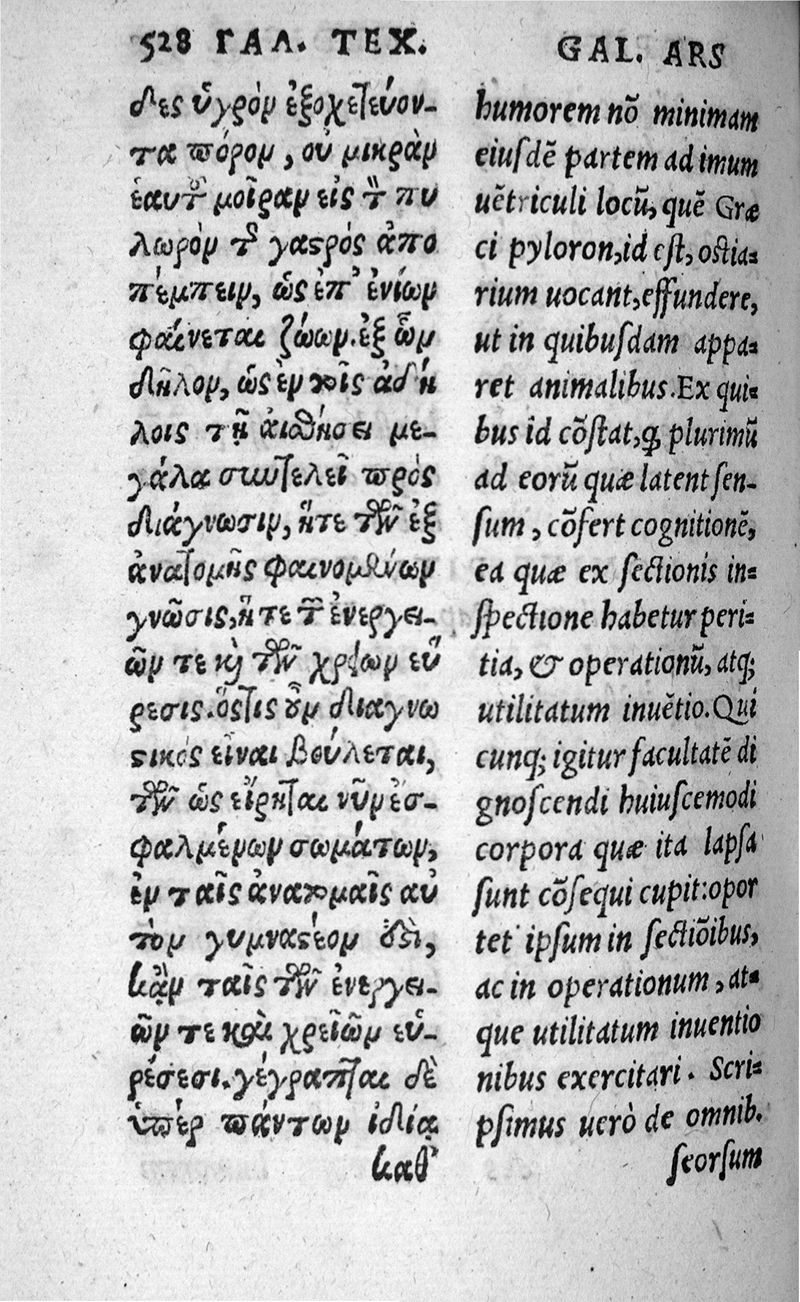 528 ΓΑΛ. ΤΕΧ.
δες ὑγρὸν ἐξοχετεύον-
τα πόρον, οὐ μικρὰν
ἑαυτοῦ μοῖραν εἰς τὸν πυ
λωρὸν τῆς γαςρὸς ἀπο
πέμπειν, ὡς ἐπ' ἐνίων
φαίνεται ζώων. ἐξ ὧν
δῆλον, ὡς ἐν τοῖς ἀδή
λοις τῇ αἰσθήσει με-
γάλα συντελεῖ πρὸς
διάγνωσιν, ἥτε τῶν ἐξ
ἀνατομῆς φαινομένων
γνῶσις, ἥ τε τῶν ἐνεργει-
ῶν τε καὶ τῶν χρειῶν εὕ
ρεσις. ὅςτις οὖν διαγνω
ςικὸς εἶναι βούλεται,
τῶν ὡς εἴρηται νῦν ἐσ-
φαλμένων σωμάτων,
ἐν ταῖς ἀνατομαῖς αὐ
τὸν γυμναςέον ἐςὶ,
κἀν ταῖς τῶν ἐνεργει-
ῶν τε καὶ χρειῶν εὑ-
ρέσεσι. γέγραπται δὲ
ὑπὲρ πάντων ἰδίᾳ
καθ'
GAL. ARS
humorem nō minimam
eiuſdē partem ad imum
uētriculi locū, quē Græ
ci pyloron, id eſt, oſtia=
rium uocant, effundere,
ut in quibuſdam appa=
ret animalibus. Ex qui=
bus id cōſtat, ꝙ plurimū
ad eorū quæ latent ſen-
ſum, cōfert cognitionē,
ea quæ ex ſectionis in=
ſpectione habetur peri=
tia, & operationū, atq;
utilitatum inuētio. Qui
cunq; igitur facultatē di
gnoſcendi huiuſcemodi
corpora quæ ita lapſa
ſunt cōſequi cupit: opor
tet ipſum in ſectiōibus,
ac in operationum, at=
que utilitatum inuentio
nibus exercitari. Scri=
pſimus uerò de omnib.
ſeorſum